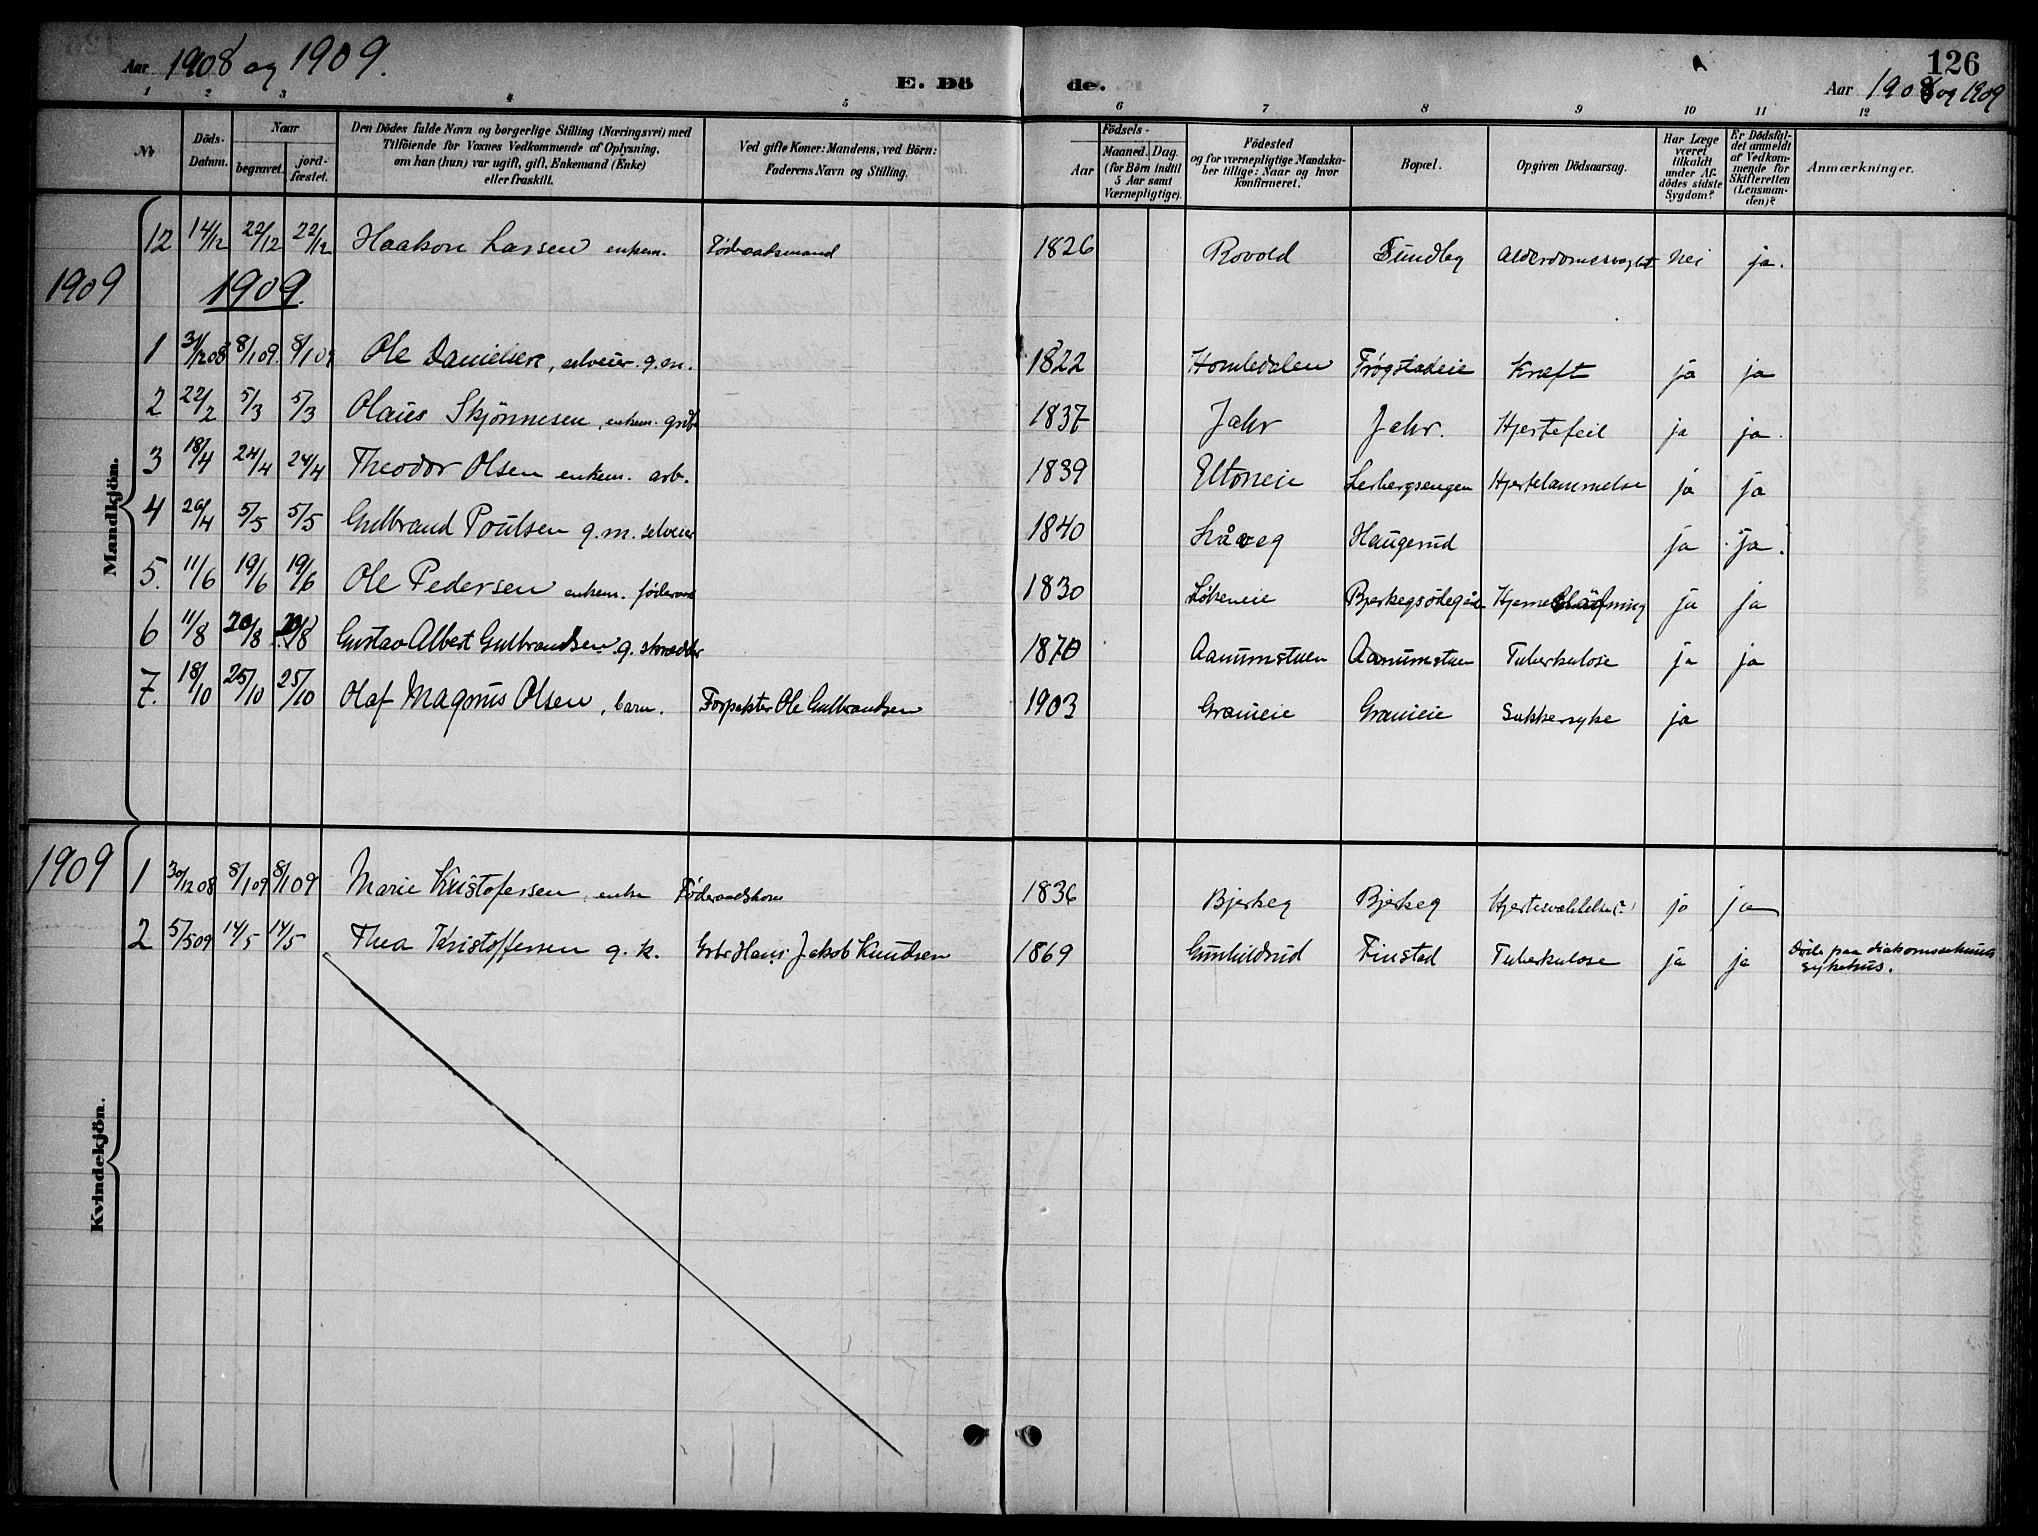 126
Aar 1908 og 1909.
E. Dö
de.
Aar 1908 og 1909
1 2 3 4 5 6 7 8 9 10 11 12
No
Döds-Datum.
Naar
begravet.
jordfæstet.
Den Dödes fulde Navn og borgerlige Stilling (Næringsvei) med
Tilföiende for Voxnes Vedkommende af Oplysning,
om han (hun) var ugift, gift, Enkemand (Enke)
eller fraskilt.
Ved gifte Koner: Mandens, ved Börn:
Faderens Navn og Stilling.
Födsels-
Aar
Maaned. Dag.
(for Börn indtil
5 Aar samt
Værnepligtige).
Födested
og for værnepligtige Mandska-
ber tillige: Naar og hvor
konfirmeret.
Bopæl.
Opgiven Dödsaarsag.
Har Læge
været
tilkaldt
under Af-
dödes sidste
Sygdom?
Er Dödsfal-
det anmeldt
af Vedkom-
mende for
Skifteretten
(Lensman-
den)?
Anmærkninger.
Mandkjön.
12 14/12 22/12 22/12 Haakon Larsen enkem. Föderaadsmand 1826 Rovold Fundby nei ja.
1909 1909.
1 31/12 08 8/1 09 8/1 09 Ole Danielsen, selveier. g.m. 1822 Homledalen Frøgstadeie Kræft ja ja
2 22/2 5/3 5/3 Olaus Skjönnesen, enkem. grdb 1837 Jahr Jahr. Hjertefeil ja ja.
3 18/4 24/4 24/4 Theodor Olsen enkem. arb. 1839 Eltoneie Lerbergsengen Hjertelammelse ja ja
4 5/5 5/5 Gulbrand Poulsen g.m. selveier 1840 Haugerud ja ja.
5. 11/6 19/6 19/6 Ole Pedersen enkem. föderaad 1830 Løkeneie ja ja
6 11/8 20/8 20/8 Gustav Albert Gulbrandsen. g. skrædder 1870 Aanumstuen Aanumstuen Tuberkulose ja ja
7. 18/10 25/10 25/10 Olaf Magnus Olsen, barn. Forpakter Ole Gulbrandsen 1903 Graneie Graneie Sukkersyke ja
Kvindekjön.
1909 1 30/12 08 8/1 09 8/1 09 Marie Kristofersen, enke Föderaadskone 1836 Bjerkeg Bjerkeg ja ja
2 5/5 09 14/5 14/5 Thea Kristoffersen g.k. Grbr Hans Jakob Knudsen 1869 Gunhildrud Finstad Tuberkulose ja ja Döde paa
sykehus.